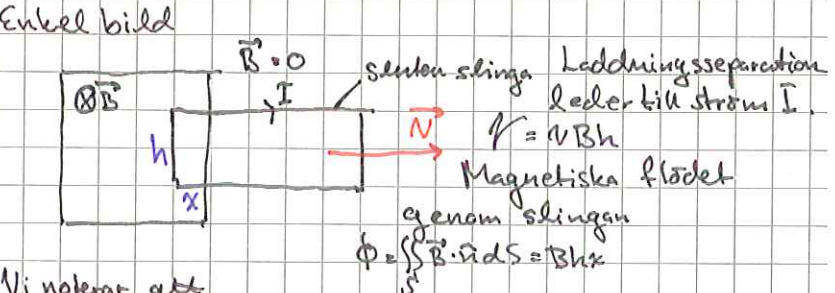 Enkel bild
B⃗ = 0
sluten slinga
Laddningsseparation
leder till ström I.
⊗B⃗
I
v⃗
V = vBh
h
Magnetiska flödet
x
genom slingan
Φ = ∬ B⃗·n̂dS = Bhx
S
Vi noterar att